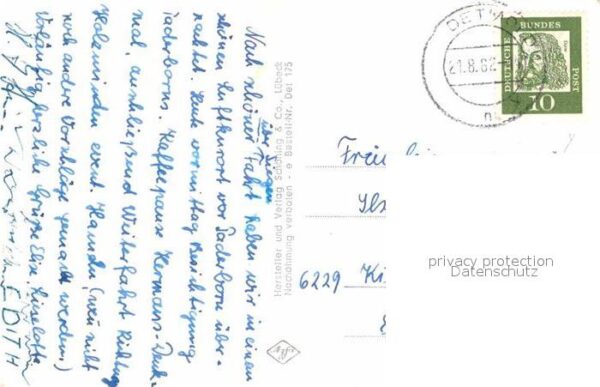 Nach schöner Fahrt haben wir in einem
über Siegen
schönen Luftkurort vor Paderborn über-
nachtet. Heute vormittag Besichtigung
Paderborns. Kaffeepause Hermanns-Denk-
mal, anschließend Weiterfahrt Richtung
Holzminden event. Hameln, (wenn nicht
noch andere Vorschläge gemacht werden.)
Vorläufig herzliche Grüße Else Liselotte
EDITH
Hersteller und Verlag Schöning & Co., Lübeck
Nachahmung verboten - Bestell-Nr. Det 175
Agfa
DETMOLD
21.8.62
DEUTSCHE BUNDESPOST
10
6229
privacy protection
Datenschutz